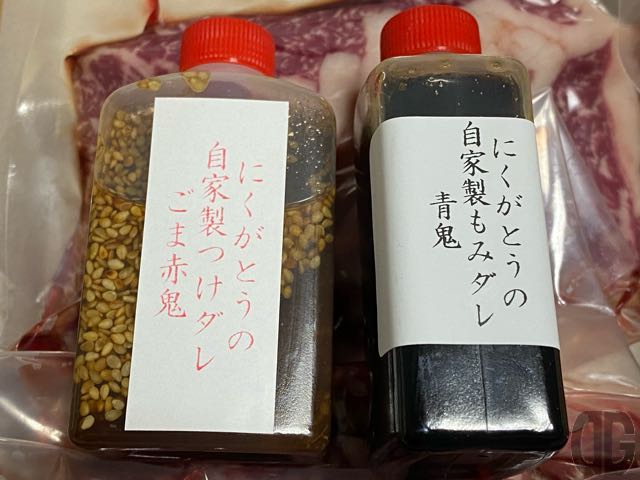 にくがとうの
自家製つけダレ
ごま赤鬼
にくがとうの
自家製もみダレ
青鬼